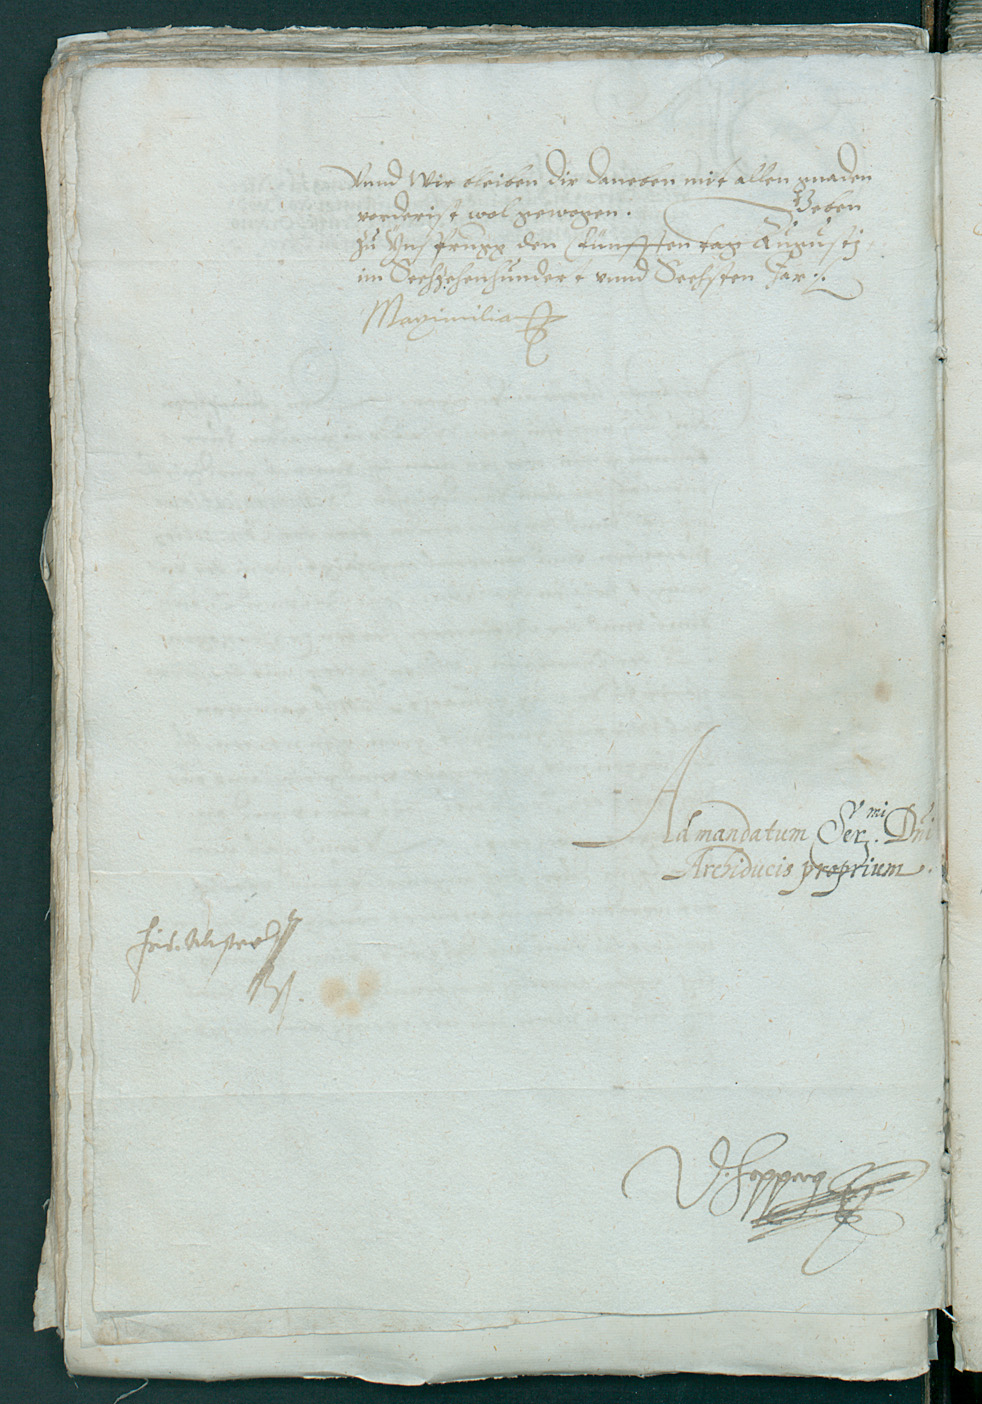 Vnnd Wir bleiben dir daneben mit allen gnaden
vorderist wol gewogen. Geben
zu Ynsprugg den Fünfften tag Augustj
im Sechzehenhundert vnnd Sechsten Jar.
Maximilian
Ad mandatum Ser.mi Dni
Archiducis proprium.